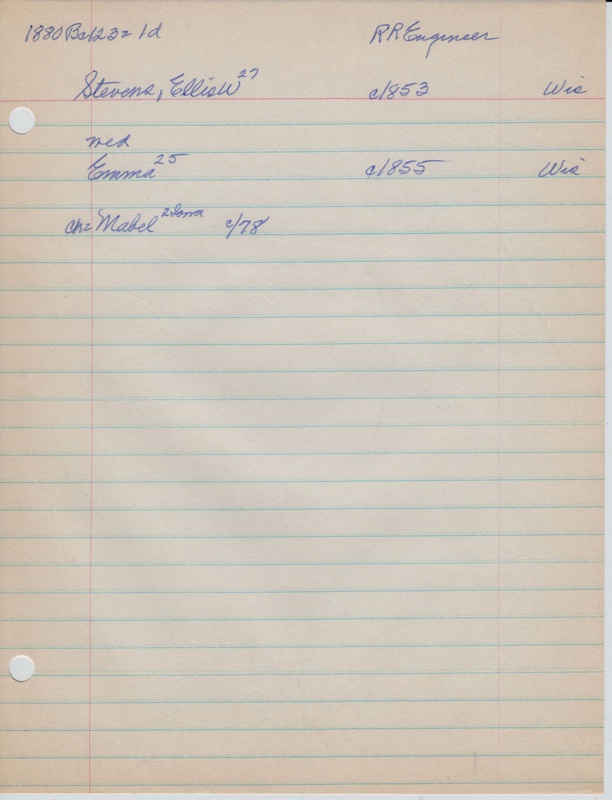 1880 Bc123= 1d RR Engineer
Stevens, Ellis W 27 c/1853 Wis
med
Emma 25 c/1855 Wis
ch= Mabel 2 Iowa c/78